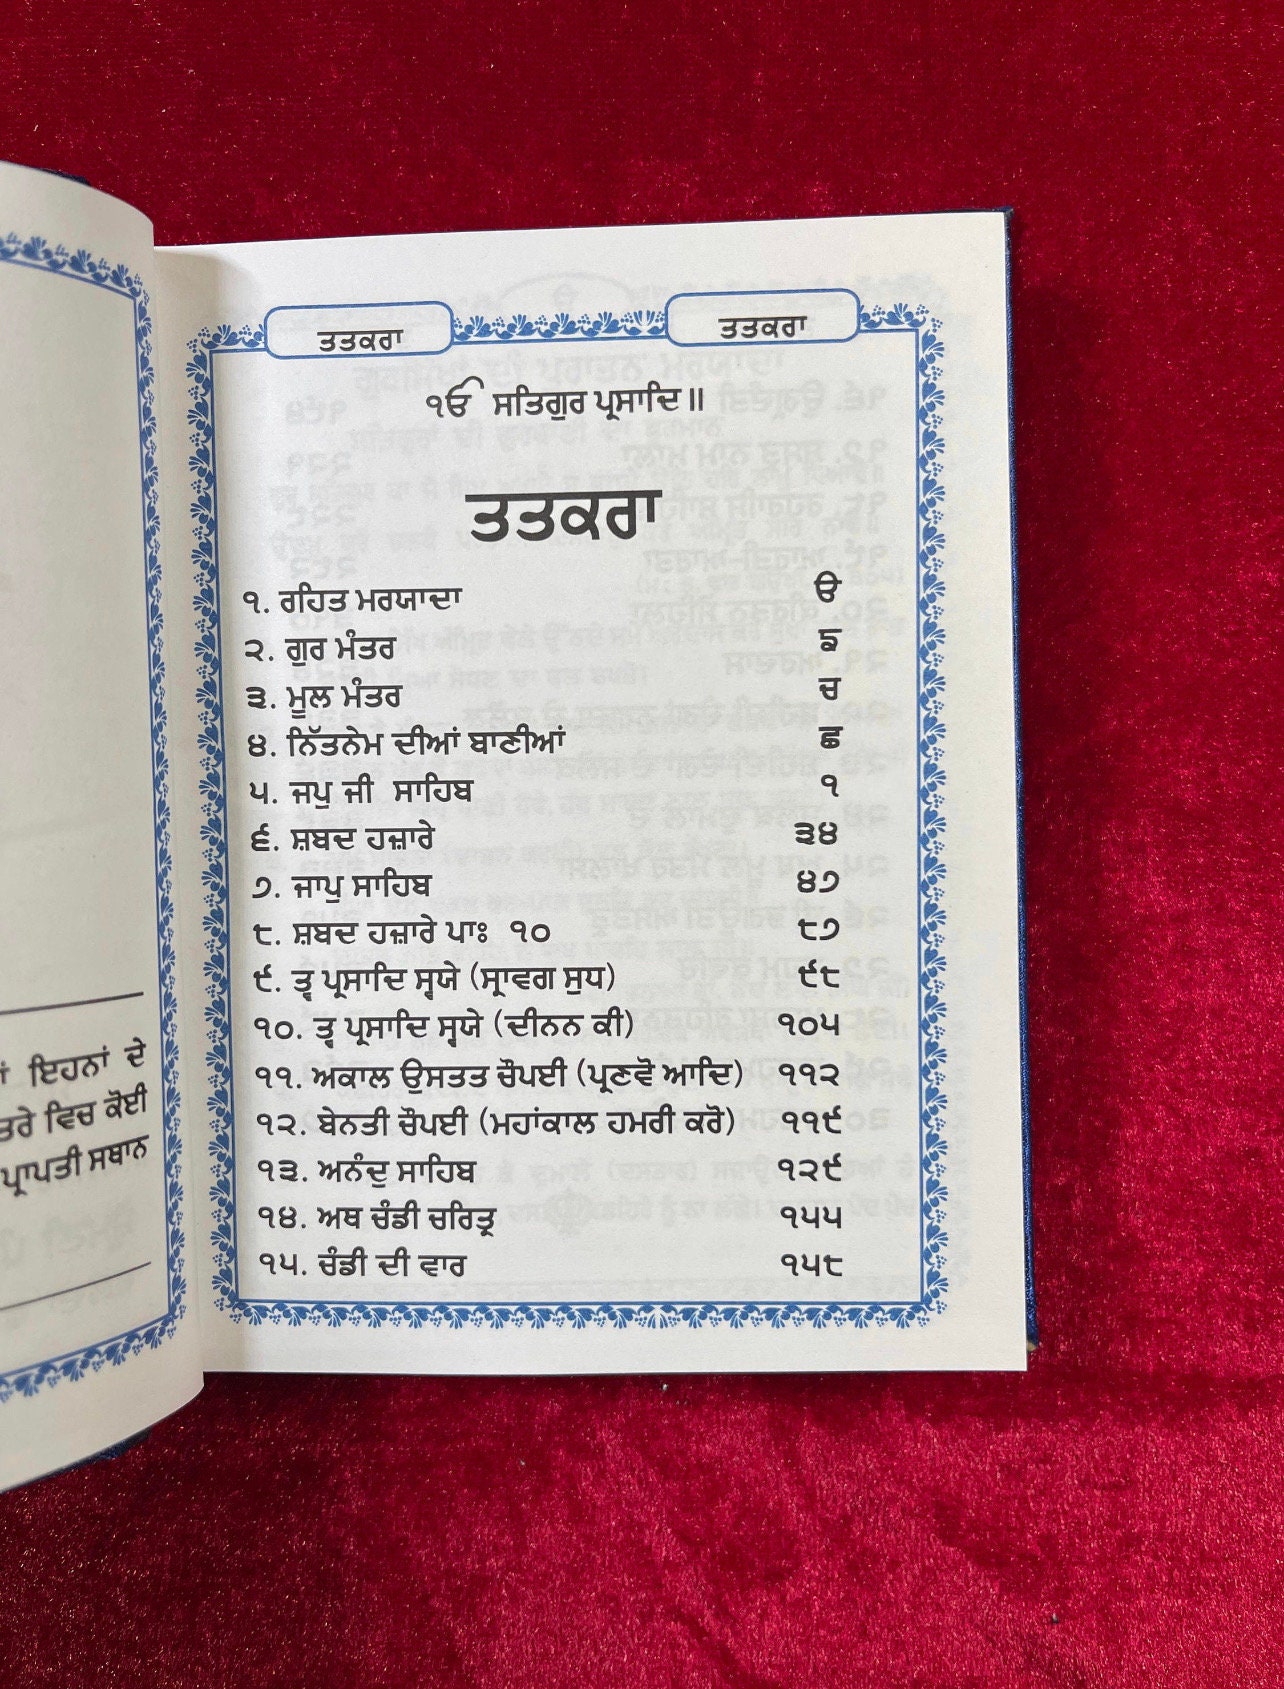 ਇਹਨਾਂ ਦੇ
ਵਿਚ ਕੋਈ
ਪ੍ਰਾਪਤੀ ਸਥਾਨ
ਤਤਕਰਾ ਤਤਕਰਾ
ੴ ਸਤਿਗੁਰ ਪ੍ਰਸਾਦਿ॥
ਤਤਕਰਾ
੧. ਰਹਿਤ ਮਰਯਾਦਾ ੳ
੨. ਗੁਰ ਮੰਤਰ ਙ
੩. ਮੂਲ ਮੰਤਰ ਚ
੪. ਨਿੱਤਨੇਮ ਦੀਆਂ ਬਾਣੀਆਂ ਛ
੫. ਜਪੁ ਜੀ ਸਾਹਿਬ ੧
੬. ਸ਼ਬਦ ਹਜ਼ਾਰੇ ੩੪
੭. ਜਾਪੁ ਸਾਹਿਬ ੪੭
੮. ਸ਼ਬਦ ਹਜ਼ਾਰੇ ਪਾਃ ੧੦ ੮੭
੯. ਤ੍ਵ ਪ੍ਰਸਾਦਿ ਸ੍ਵਯੇ (ਸ੍ਰਾਵਗ ਸੁਧ) ੯੮
੧੦. ਤ੍ਵ ਪ੍ਰਸਾਦਿ ਸ੍ਵਯੇ (ਦੀਨਨ ਕੀ) ੧੦੫
੧੧. ਅਕਾਲ ਉਸਤਤ ਚੌਪਈ (ਪ੍ਰਣਵੋ ਆਦਿ) ੧੧੨
੧੨. ਬੇਨਤੀ ਚੌਪਈ (ਮਹਾਂਕਾਲ ਹਮਰੀ ਕਰੋ) ੧੧੯
੧੩. ਅਨੰਦੁ ਸਾਹਿਬ ੧੨੯
੧੪. ਅਥ ਚੰਡੀ ਚਰਿਤ੍ਰ ੧੫੫
੧੫. ਚੰਡੀ ਦੀ ਵਾਰ ੧੫੮